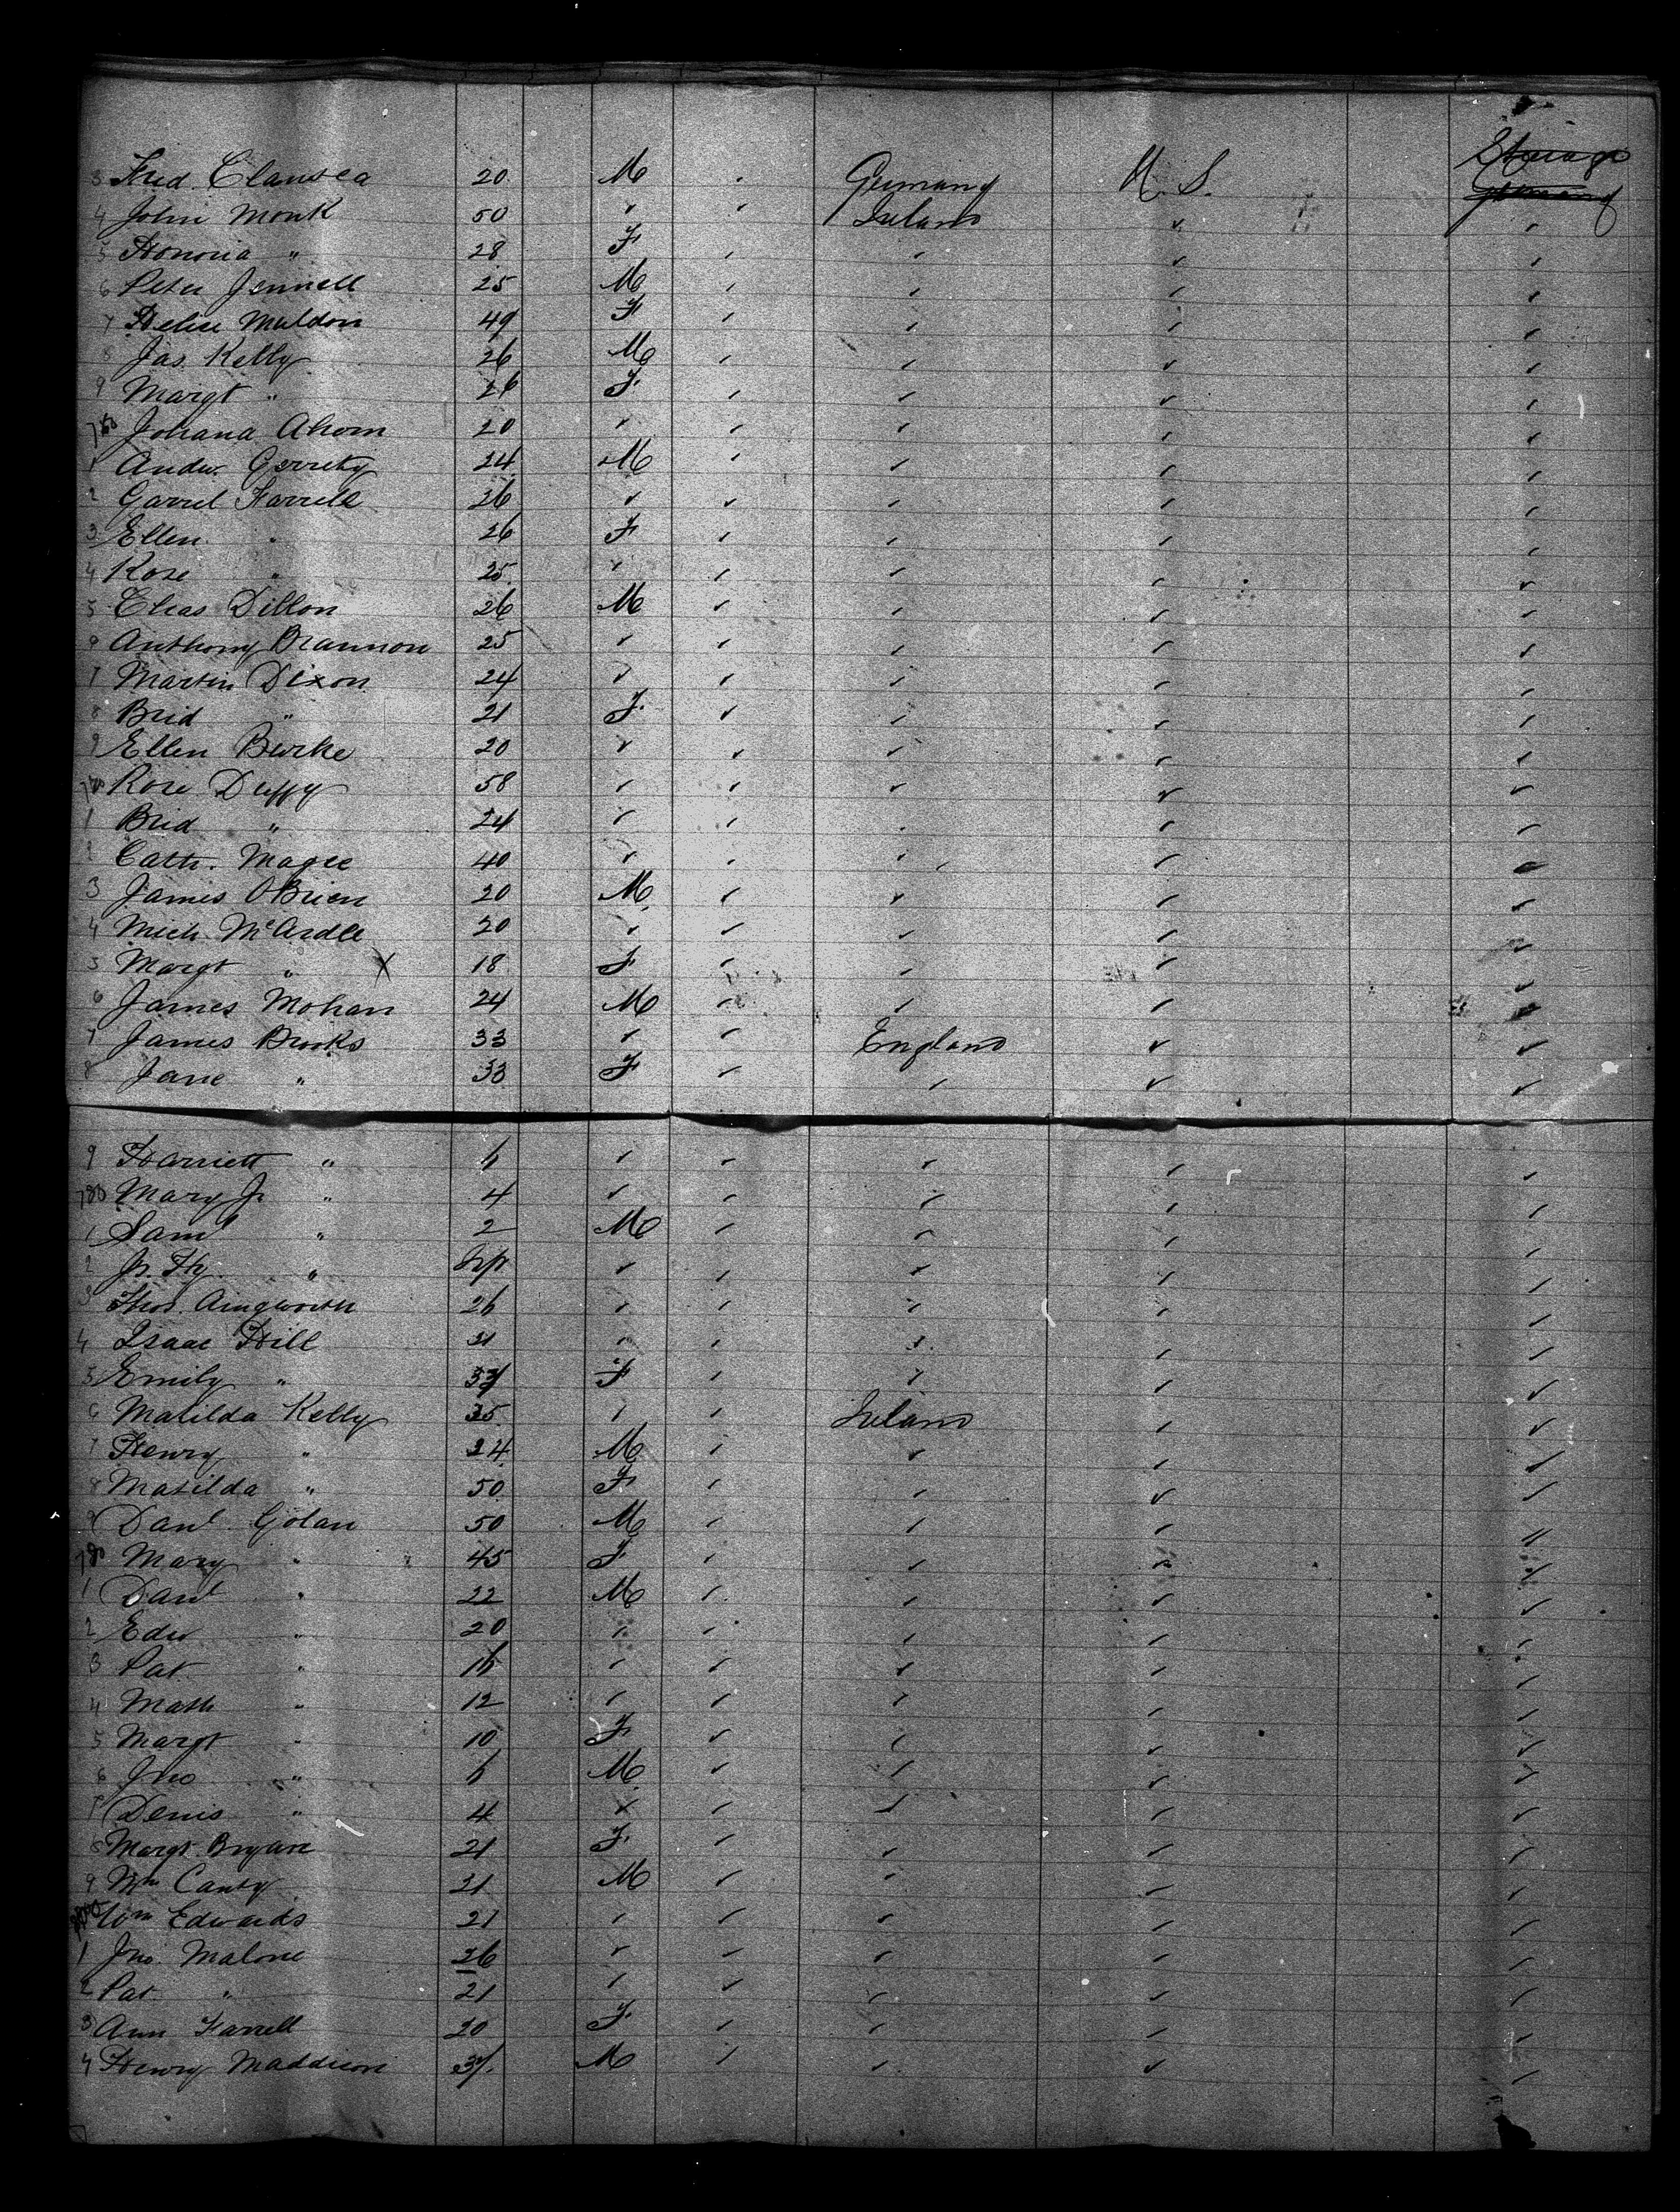 Steerage
3 Fred. Clausea 20 M ✓ Germany U.S. Germany
4 John Monk 50 ✓ ✓ Ireland ✓ ✓
5 Honoria " 28 F ✓ ✓ ✓ ✓
6 Peter Jennell 25 M ✓ ✓ ✓ ✓
7 Muldon 49 F ✓ ✓ ✓ ✓
8 Jas. Kelly 26 M ✓ ✓ ✓ ✓
9 Margt " 26 F ✓ ✓ ✓ ✓
Johana Ahern 20 ✓ ✓ ✓ ✓ ✓
1 Andw. Gerrety 24 M ✓ ✓ ✓ ✓
2 Garret Farrell 26 ✓ ✓ ✓ ✓ ✓
3 Ellen " 26 F ✓ ✓ ✓ ✓
4 Rose " 25 ✓ ✓ ✓ ✓ ✓
5 Chas Dillon 26 M ✓ ✓ ✓ ✓
Anthony Brannon 25 ✓ ✓ ✓ ✓ ✓
7 Martin Dixon 24 ✓ ✓ ✓ ✓ ✓
8 Brid " 21 F ✓ ✓ ✓ ✓
9 Ellen Burke 20 ✓ ✓ ✓ ✓ ✓
Rose Duffy 58 ✓ ✓ ✓ ✓ ✓
1 Brid " 24 ✓ ✓ ✓ ✓ ✓
2 Cath. Magee 40 ✓ ✓ ✓ ✓ ✓
3 James O'Brien 20 M ✓ ✓ ✓ ✓
4 Mich McArdle 20 ✓ ✓ ✓ ✓ ✓
5 Margt " X 18 F ✓ ✓ ✓ ✓
6 James Mohan 24 M ✓ ✓ ✓ ✓
7 James Brooks 33 ✓ ✓ England ✓ ✓
8 Jane " 33 F ✓ ✓ ✓ ✓
9 Harriett " 6 ✓ ✓ ✓ ✓ ✓
780 Mary J. " 4 ✓ ✓ ✓ ✓ ✓
1 Saml " 2 M ✓ ✓ ✓ ✓
2 Js. Hy. " Inft ✓ ✓ ✓ ✓ ✓
3 Thos. Aingworth 26 ✓ ✓ ✓ ✓ ✓
4 Isaac Hill 31 ✓ ✓ ✓ ✓ ✓
5 Emily " F ✓ ✓ ✓ ✓
6 Matilda Kelly 35 ✓ ✓ Ireland ✓ ✓
7 Henry " 24 M ✓ ✓ ✓ ✓
8 Matilda " 50 F ✓ ✓ ✓ ✓
9 Danl Golan 50 M ✓ ✓ ✓ ✓
790 Mary " 45 F ✓ ✓ ✓ ✓
1 Danl " 22 M ✓ ✓ ✓ ✓
2 Edw " 20 ✓ ✓ ✓ ✓ ✓
3 Pat " 16 ✓ ✓ ✓ ✓ ✓
4 Math " 12 ✓ ✓ ✓ ✓ ✓
5 Margt " 10 F ✓ ✓ ✓ ✓
6 Jno " 6 M ✓ ✓ ✓ ✓
7 Denis " 4 ✓ ✓ ✓ ✓ ✓
8 Margt. 21 F ✓ ✓ ✓ ✓
9 Wm Canty 31 M ✓ ✓ ✓ ✓
Wm Edwards 21 ✓ ✓ ✓ ✓ ✓
1 Jno. Malone 26 ✓ ✓ ✓ ✓ ✓
2 Pat " 21 ✓ ✓ ✓ ✓ ✓
3 Ann Farrell 20 F ✓ ✓ ✓ ✓
4 Henry Maddison 37 M ✓ ✓ ✓ ✓